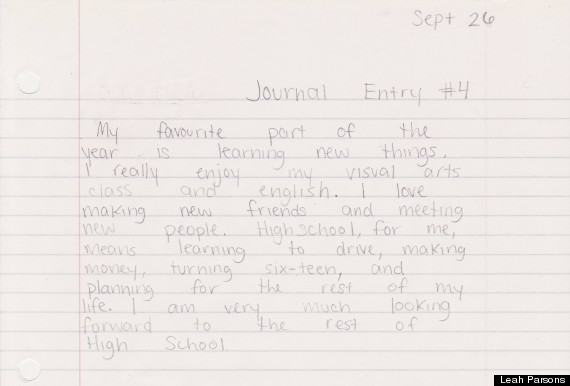 Sept 26
Journal Entry #4
My favourite part of the
year is learning new things.
I really enjoy my visual arts
class and english. I love
making new friends and meeting
new people. High school, for me,
means learning to drive, making
money, turning six-teen, and
planning for the rest of my
life. I am very much looking
forward to the rest of
High School
Leah Parsons